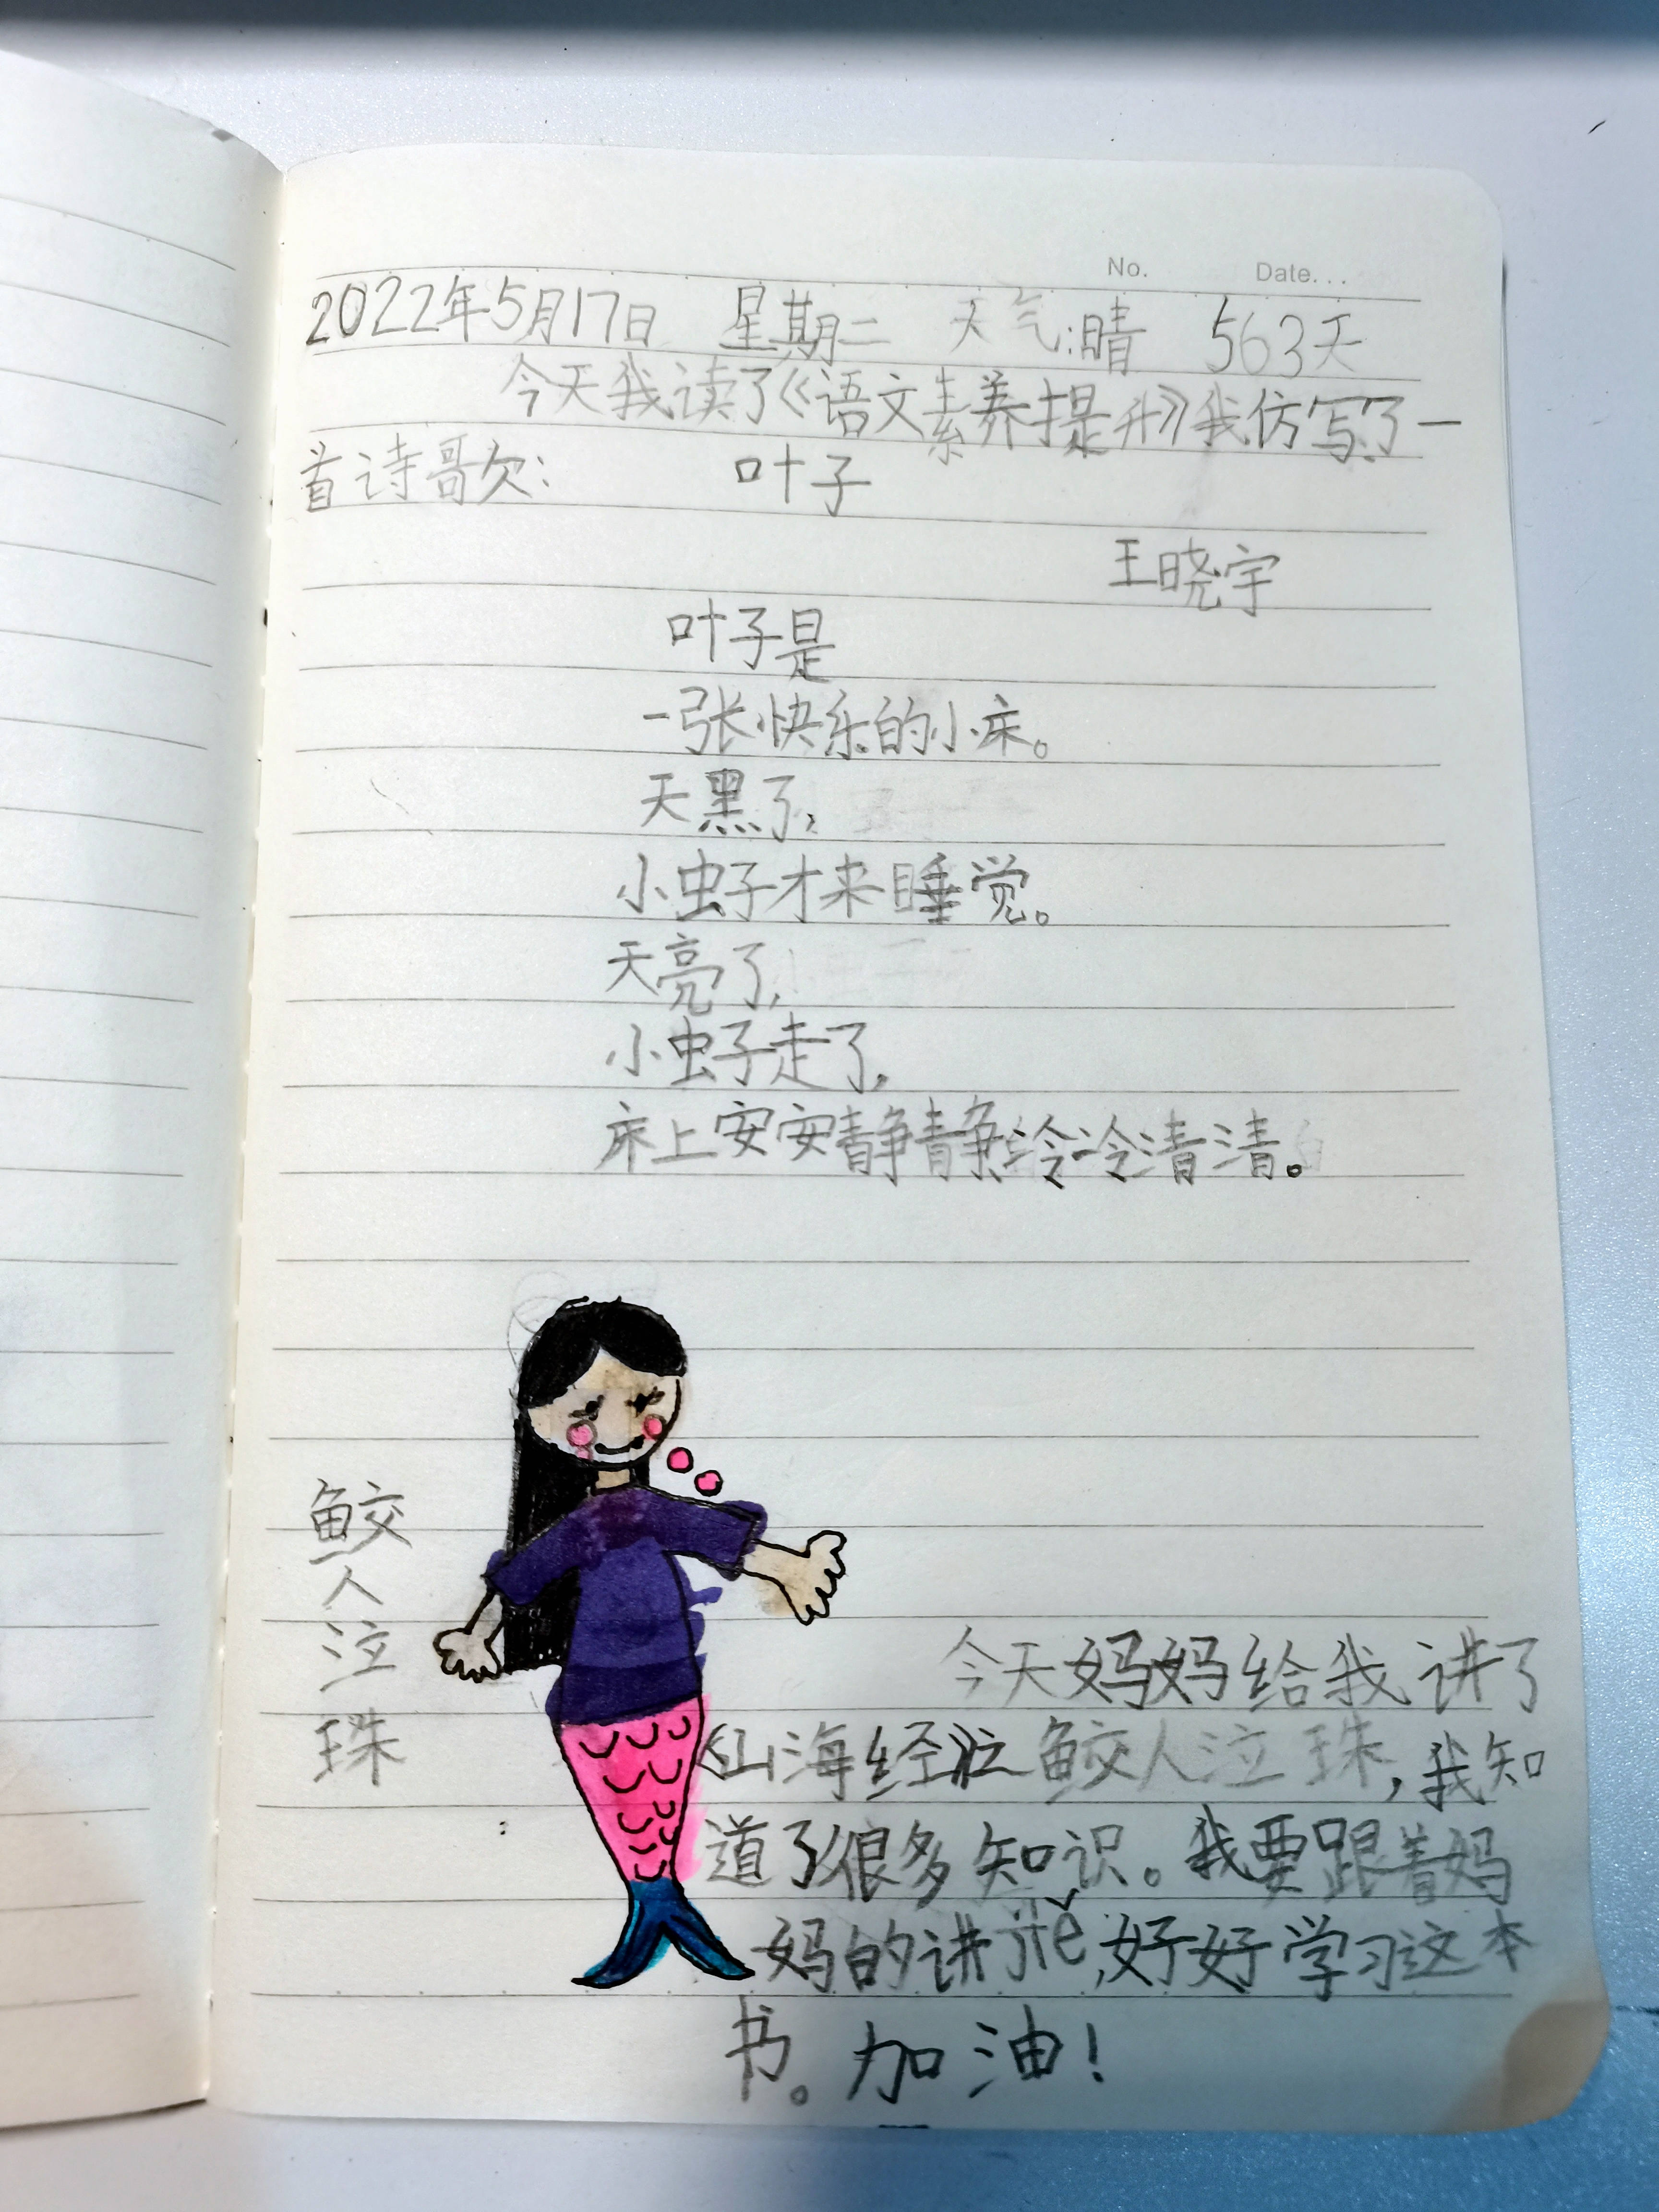 No. Date...
2022年5月17日 星期二 天气:晴 563天
今天我读了《语文素养提升》我仿写了一
首诗歌:
叶子
王晓宇
叶子是
一张快乐的小床。
天黑了,
小虫子才来睡觉。
天亮了,
小虫子走了,
床上安安静静冷冷清清。
鲛
人
泣
珠
今天妈妈给我讲了
《山海经》之鲛人泣珠,我知
道了很多知识。我要跟着妈
妈的讲jiě,好好学习这本
书。加油!